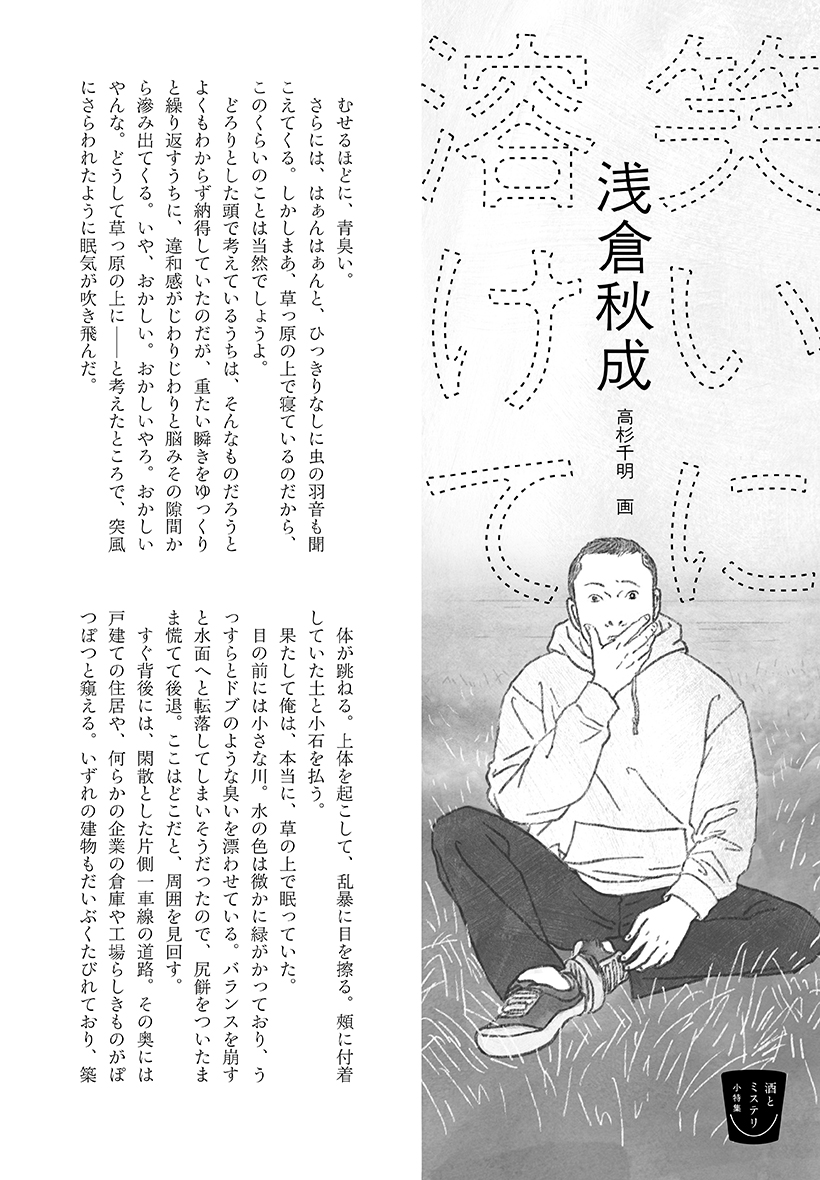 笑いに
溶けて
浅倉秋成
高杉千明　画
酒と
ミステリ
小特集
むせるほどに、青臭い。
さらには、はぁんはぁんと、ひっきりなしに虫の羽音も聞
こえてくる。しかしまあ、草っ原の上で寝ているのだから、
このくらいのことは当然でしょうよ。
どろりとした頭で考えているうちは、そんなものだろうと
よくもわからず納得していたのだが、重たい瞬きをゆっくり
と繰り返すうちに、違和感がじわりじわりと脳みその隙間か
ら滲み出てくる。いや、おかしい。おかしいやろ。おかしい
やんな。どうして草っ原の上に――と考えたところで、突風
にさらわれたように眠気が吹き飛んだ。
体が跳ねる。上体を起こして、乱暴に目を擦る。頬に付着
していた土と小石を払う。
果たして俺は、本当に、草の上で眠っていた。
目の前には小さな川。水の色は微かに緑がかっており、う
っすらとドブのような臭いを漂わせている。バランスを崩す
と水面へと転落してしまいそうだったので、尻餅をついたま
ま慌てて後退。ここはどこだと、周囲を見回す。
すぐ背後には、閑散とした片側一車線の道路。その奥には
戸建ての住居や、何らかの企業の倉庫や工場らしきものがぽ
つぽつと窺える。いずれの建物もだいぶくたびれており、築